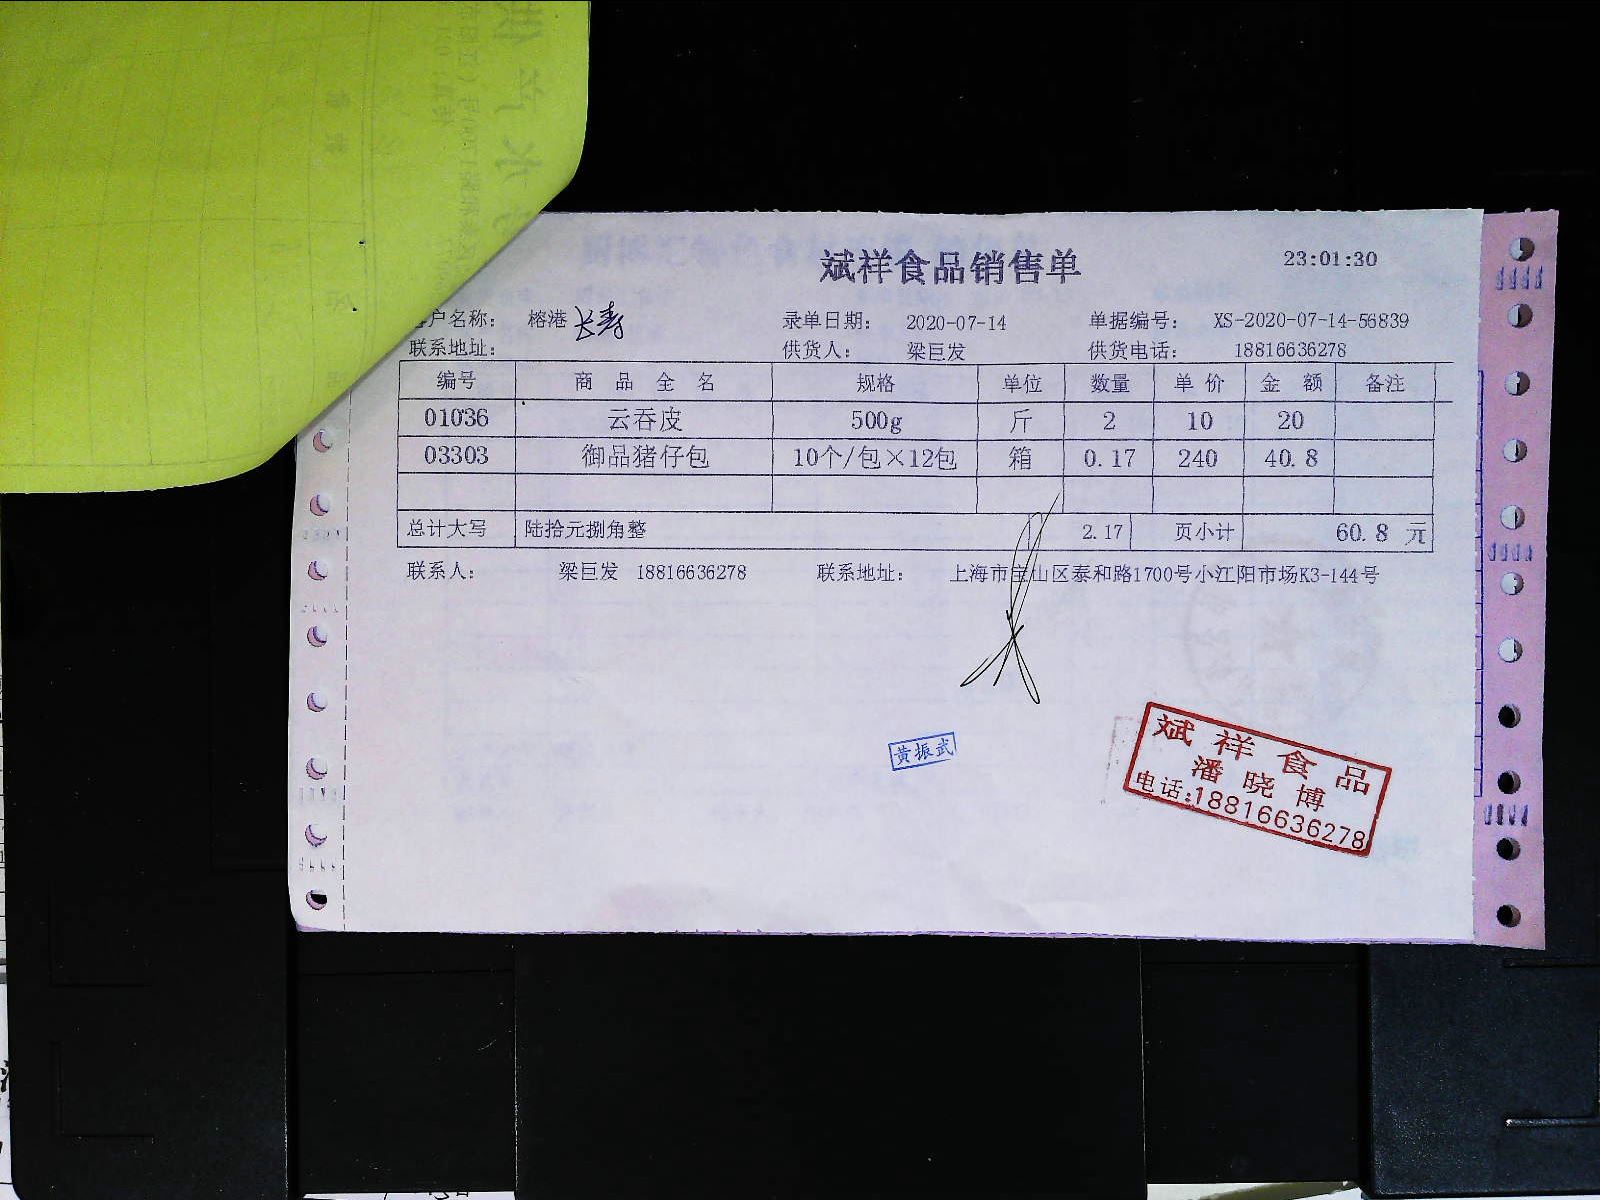 斌祥食品销售单
23:01:30
户名称: 榕港 长寿 录单日期: 2020-07-14 单据编号: XS-2020-07-14-56839
联系地址: 供货人: 梁巨发 供货电话: 18816636278
编号 商品全名 规格 单位 数量 单价 金额 备注
01036 云吞皮 500g 斤 2 10 20
03303 御品猪仔包 10个/包×12包 箱 0.17 240 40.8
总计大写 陆拾元捌角整 2.17 页小计 60.8 元
联系人: 梁巨发 18816636278 联系地址: 上海市宝山区泰和路1700号小江阳市场K3-144号
黄振武
斌祥食品
潘晓博
电话:18816636278